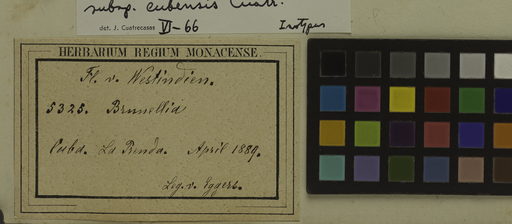 subsp. cubensis Cuatr.
det. J. Cuatrecasas VI-66 Isotypus
HERBARIUM REGIUM MONACENSE.
Fl. v. Westindien.
5325. Brunellia
Cuba. La Prenda. April 1889.
Leg. v. Eggers.